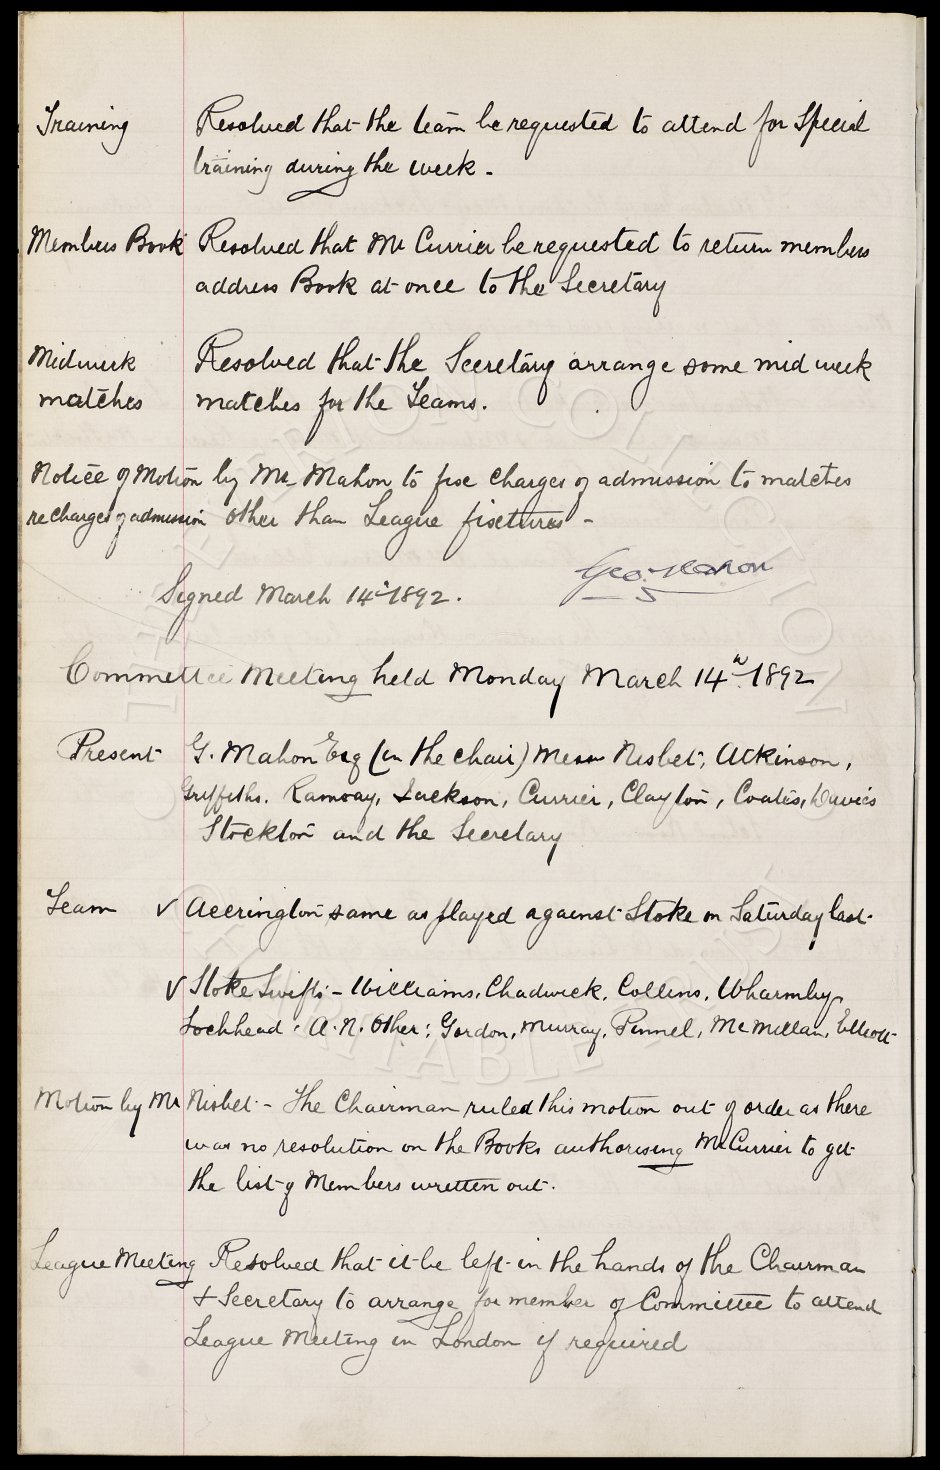 Training Resolved that the team be requested to attend for Special
training during the week.
Members Book Resolved that Mr Currier be requested to return members
address Book at once to the Secretary
Midweek Resolved that the Secretary arrange some mid week
matches matches for the Teams.
Notice of Motion by Mr Mahon to fix charges of admission to matches
re charges of admission other than League fixtures -
Geo. Mahon
Signed March 14th 1892.
Committee Meeting held Monday March 14th 1892
Present G. Mahon Esq (in the chair) Messrs Nisbet, Atkinson,
Griffiths, Ramsay, Jackson, Currier, Clayton, Coates, Davies
Stockton and the Secretary
Team √ Accrington same as played against Stoke on Saturday last
√ Stoke Swifts - Williams, Chadwick, Collins, Wharmby,
Lochhead, A. N. Other; Gordon, Murray, Pinnel, McMillan, Elliott
Motion by Mr Nisbet - The Chairman ruled this motion out of order as there
was no resolution on the Books authorising Mr Currier to get
the list of Members written out.
League Meeting Resolved that it be left in the hands of the Chairman
& Secretary to arrange for member of Committee to attend
League Meeting in London if required
THE EVERTON COLLECTION
CHARITABLE TRUST